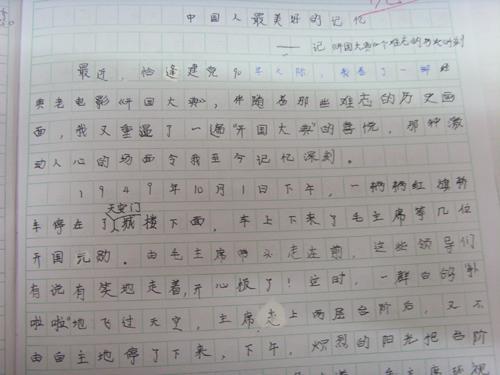 中国人最美好的记忆
——记《开国大典》个难忘的历史时刻
最近，恰逢建党90年之际，我看了一部经
典老电影《开国大典》，伴随着那些难志的历史画
面，我又重温了一遍"开国大典"的喜悦，那种激
动人心的场面令我至今记忆深刻。
1949年10月1日下午，一辆辆红旗轿
天安门
车停在了城楼下面，车上下来了毛主席等几位
开国元勋。由毛主席带头走在前，这些领导们
有说有笑地走着，开心极了！这时，一群白鸽"扑
啦啦"地飞过天空，主席走上两层台阶后，又不
由自主地停了下来，下午，炽烈的阳光把台阶
毛主席环视